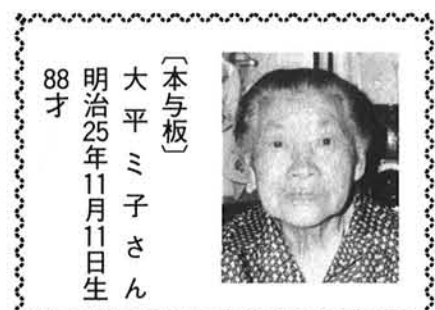 〔本与板〕
大平ミ子さん
明治25年11月11日生
88才